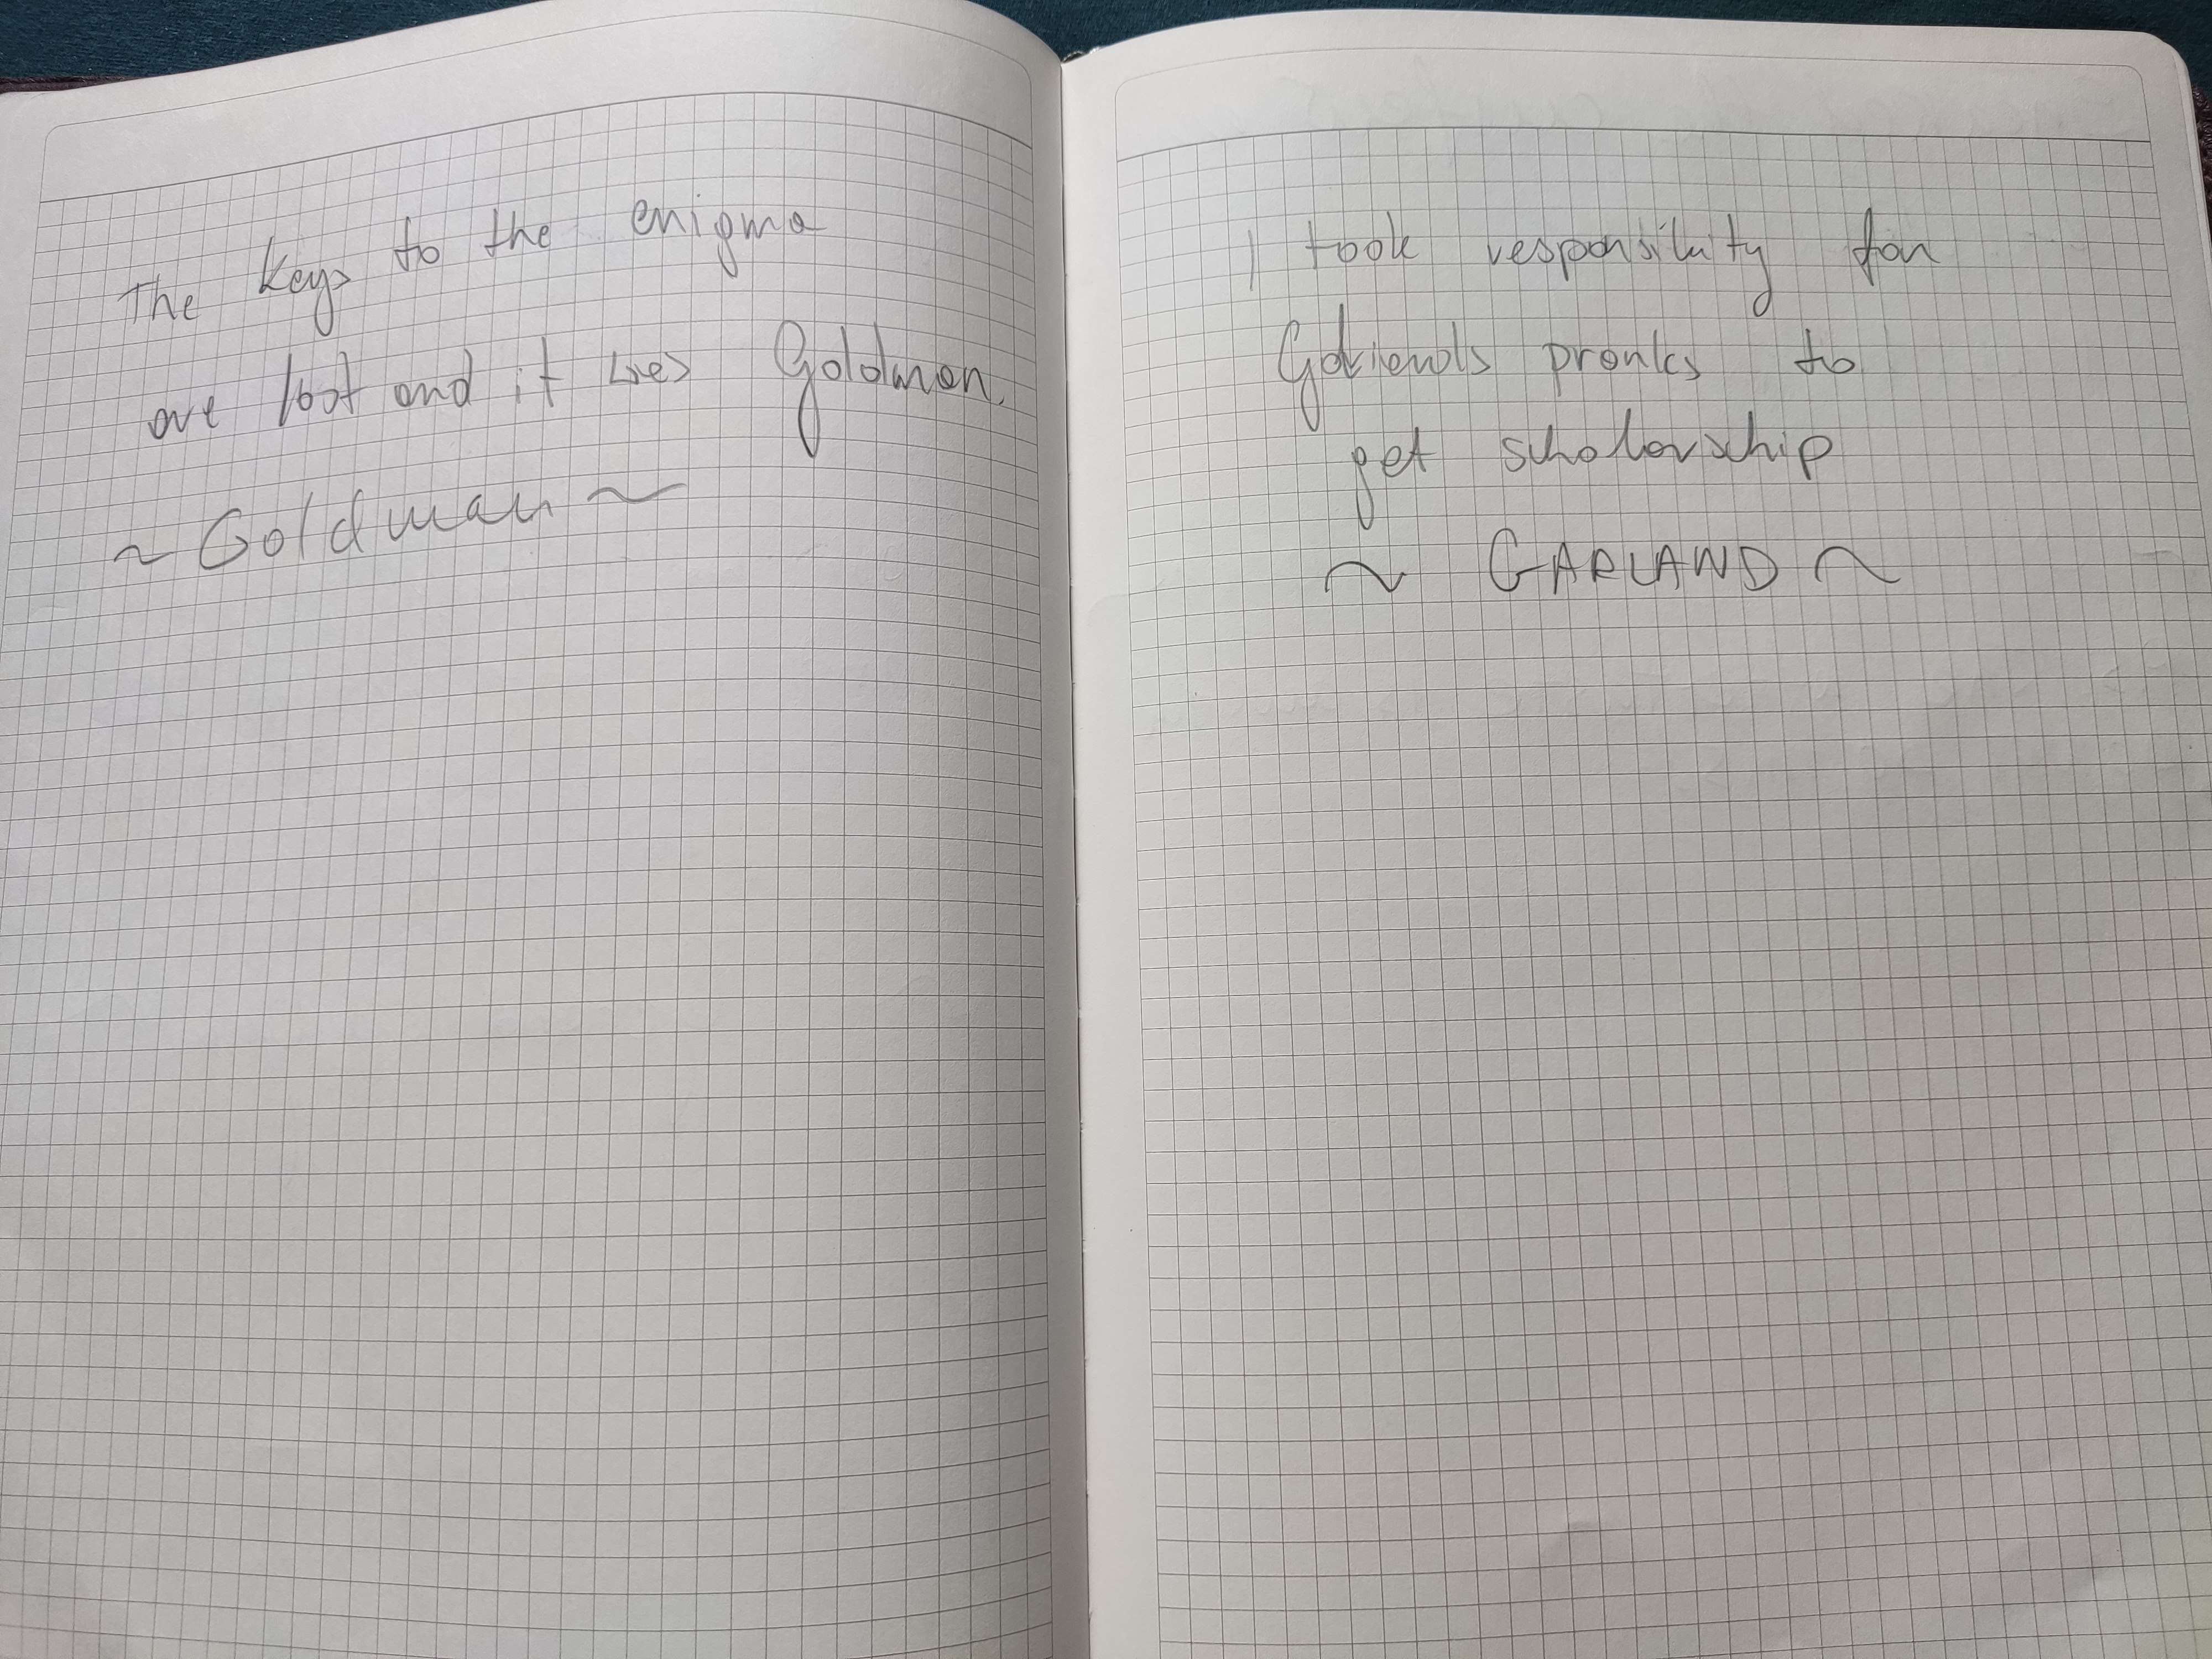 The keys to the enigma
are lost and it lies Goldman.
~ Goldman ~
I took responsibility for
pranks to
get scholarship
~ GARLAND ~